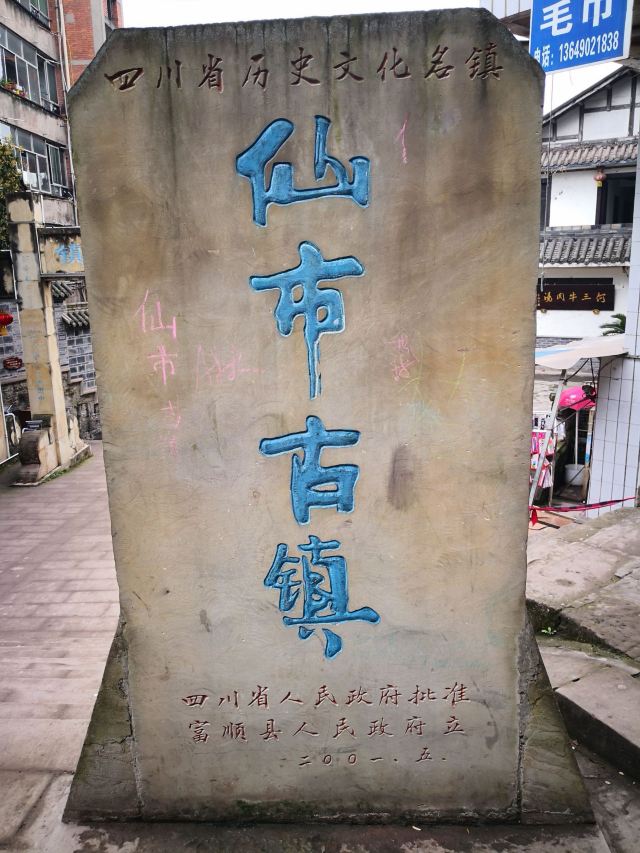 四川省历史文化名镇
仙市古镇
四川省人民政府批准
富顺县人民政府立
二00一.五.
毛巾
电话：13649021838
镇
汤肉牛三何
仙市古